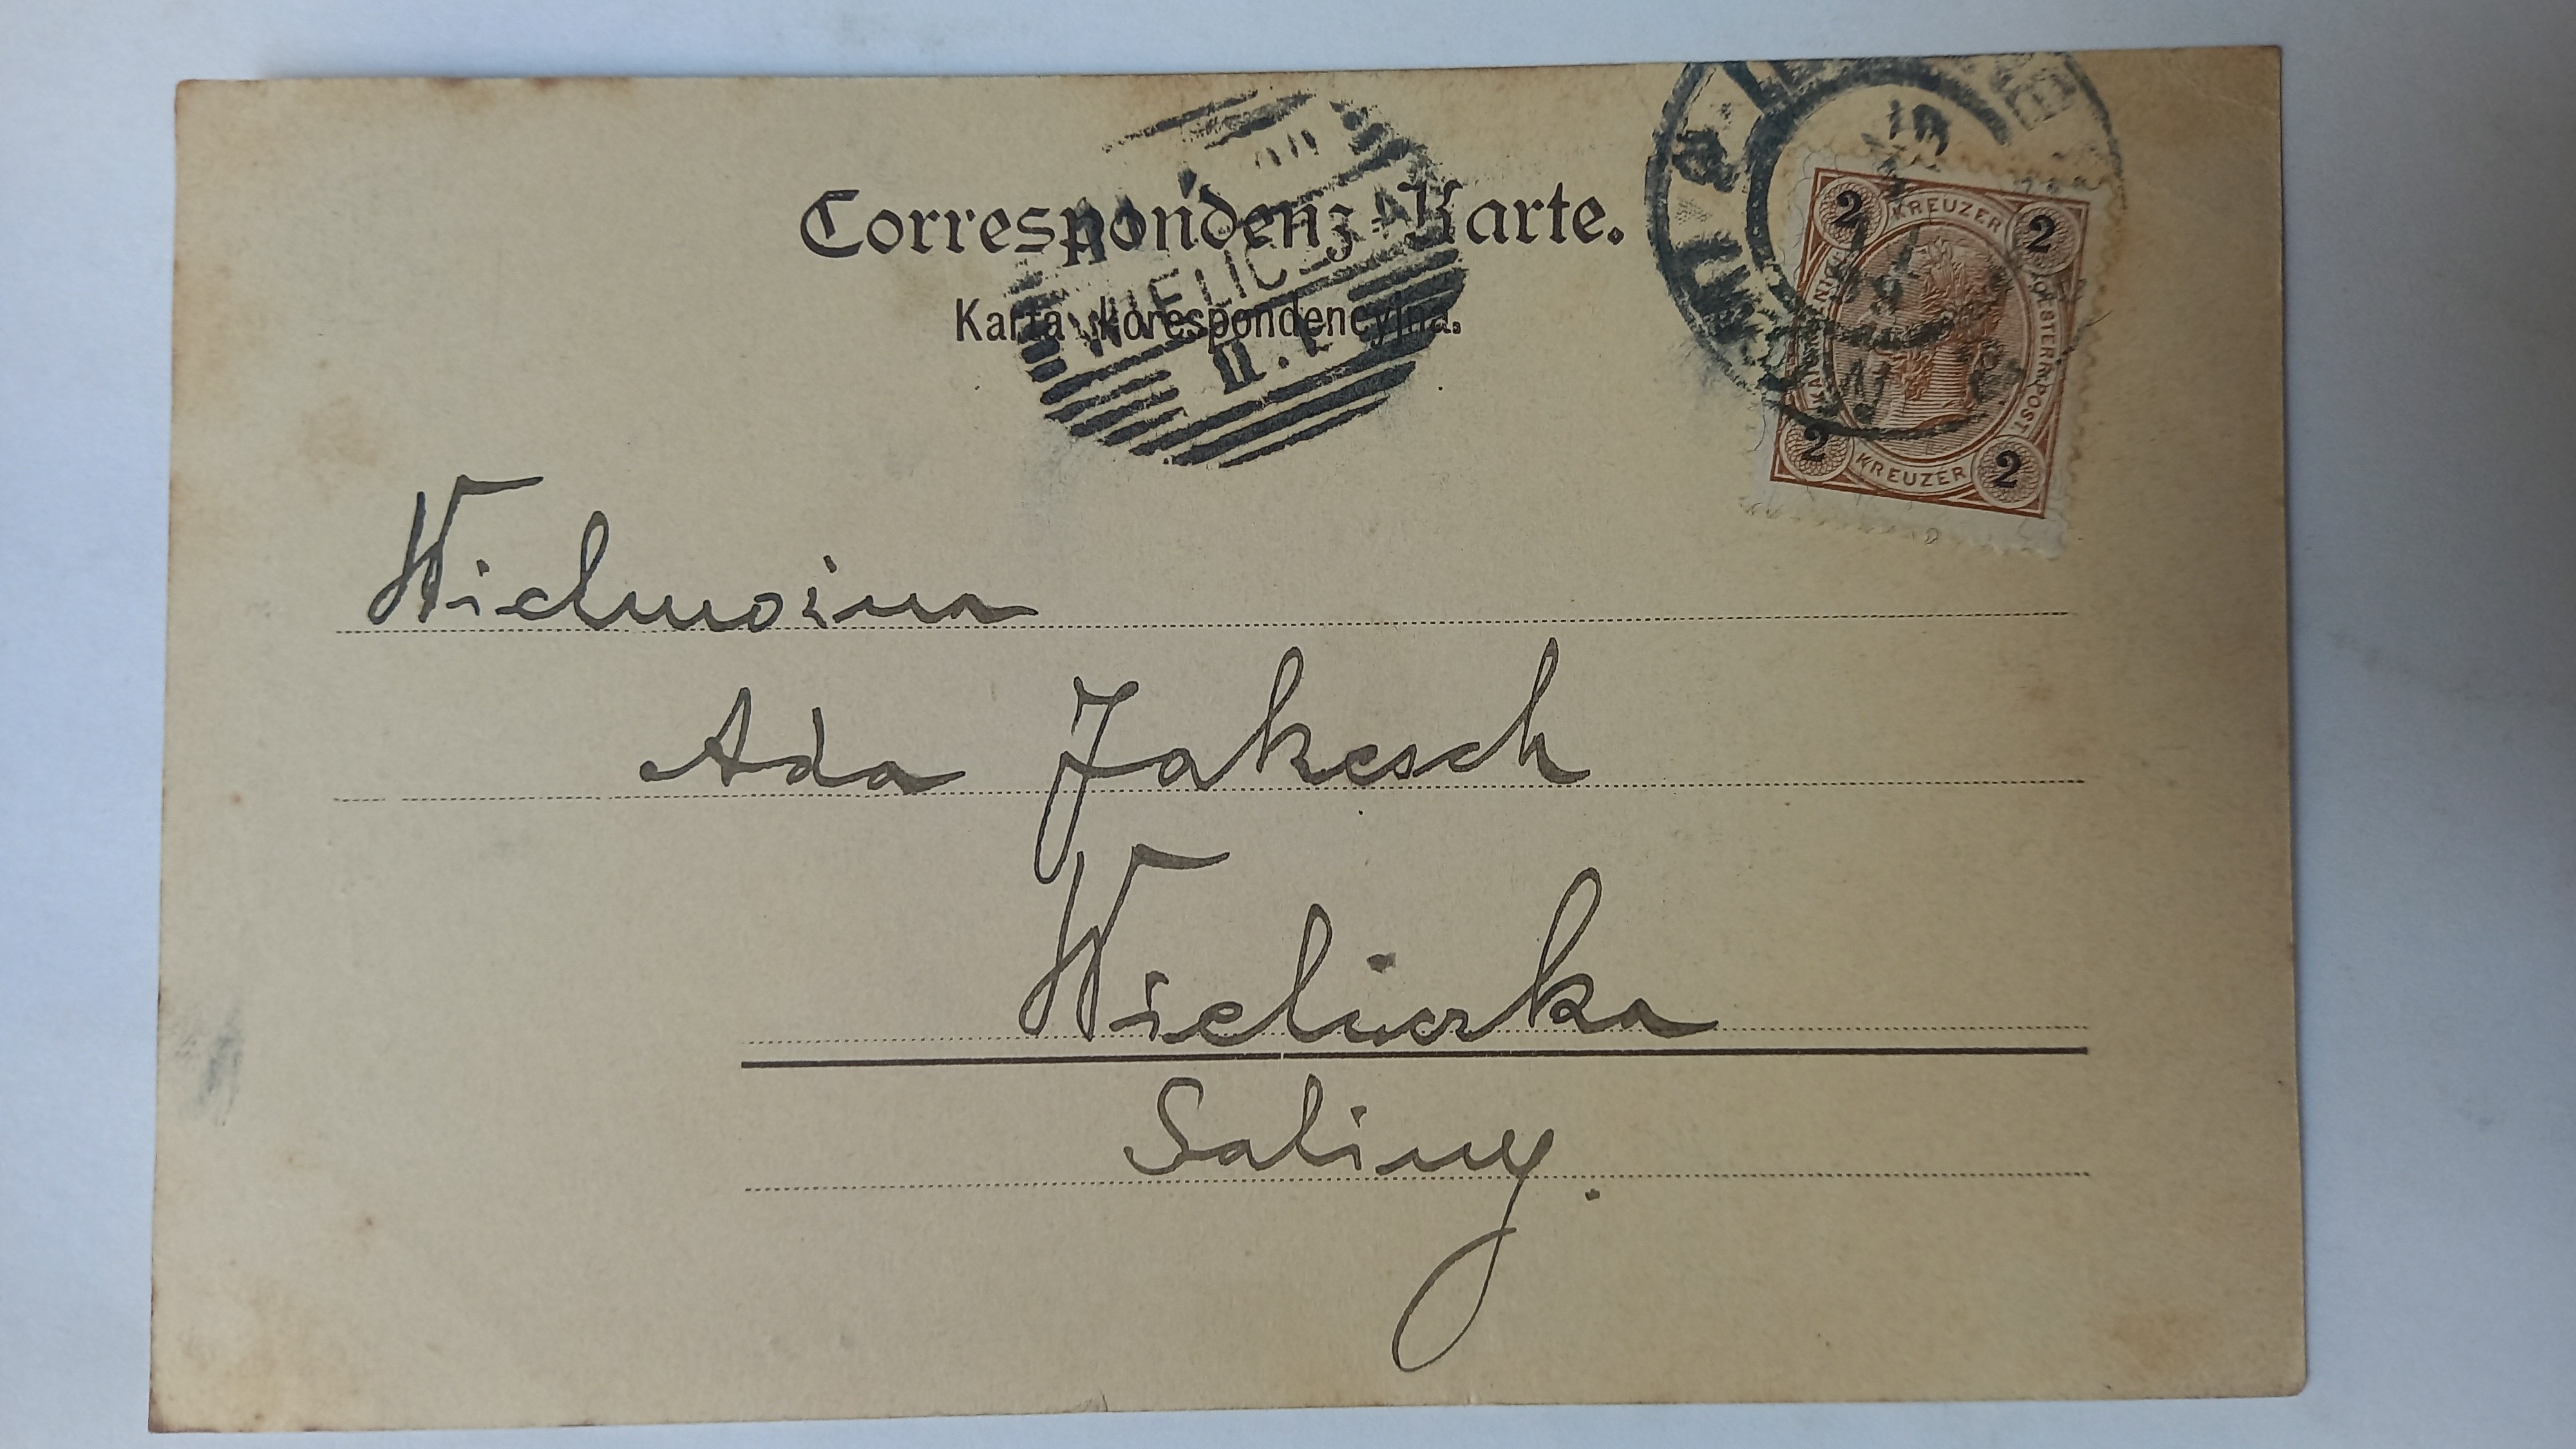 Correspondenz-Karte.
Karta korespondencyjna.
WIELIC
II.
2 KREUZER 2
OESTERR.POST.
2 KREUZER 2
Wielmożna
Ada Jakesch
Wieliczka
Saliny.